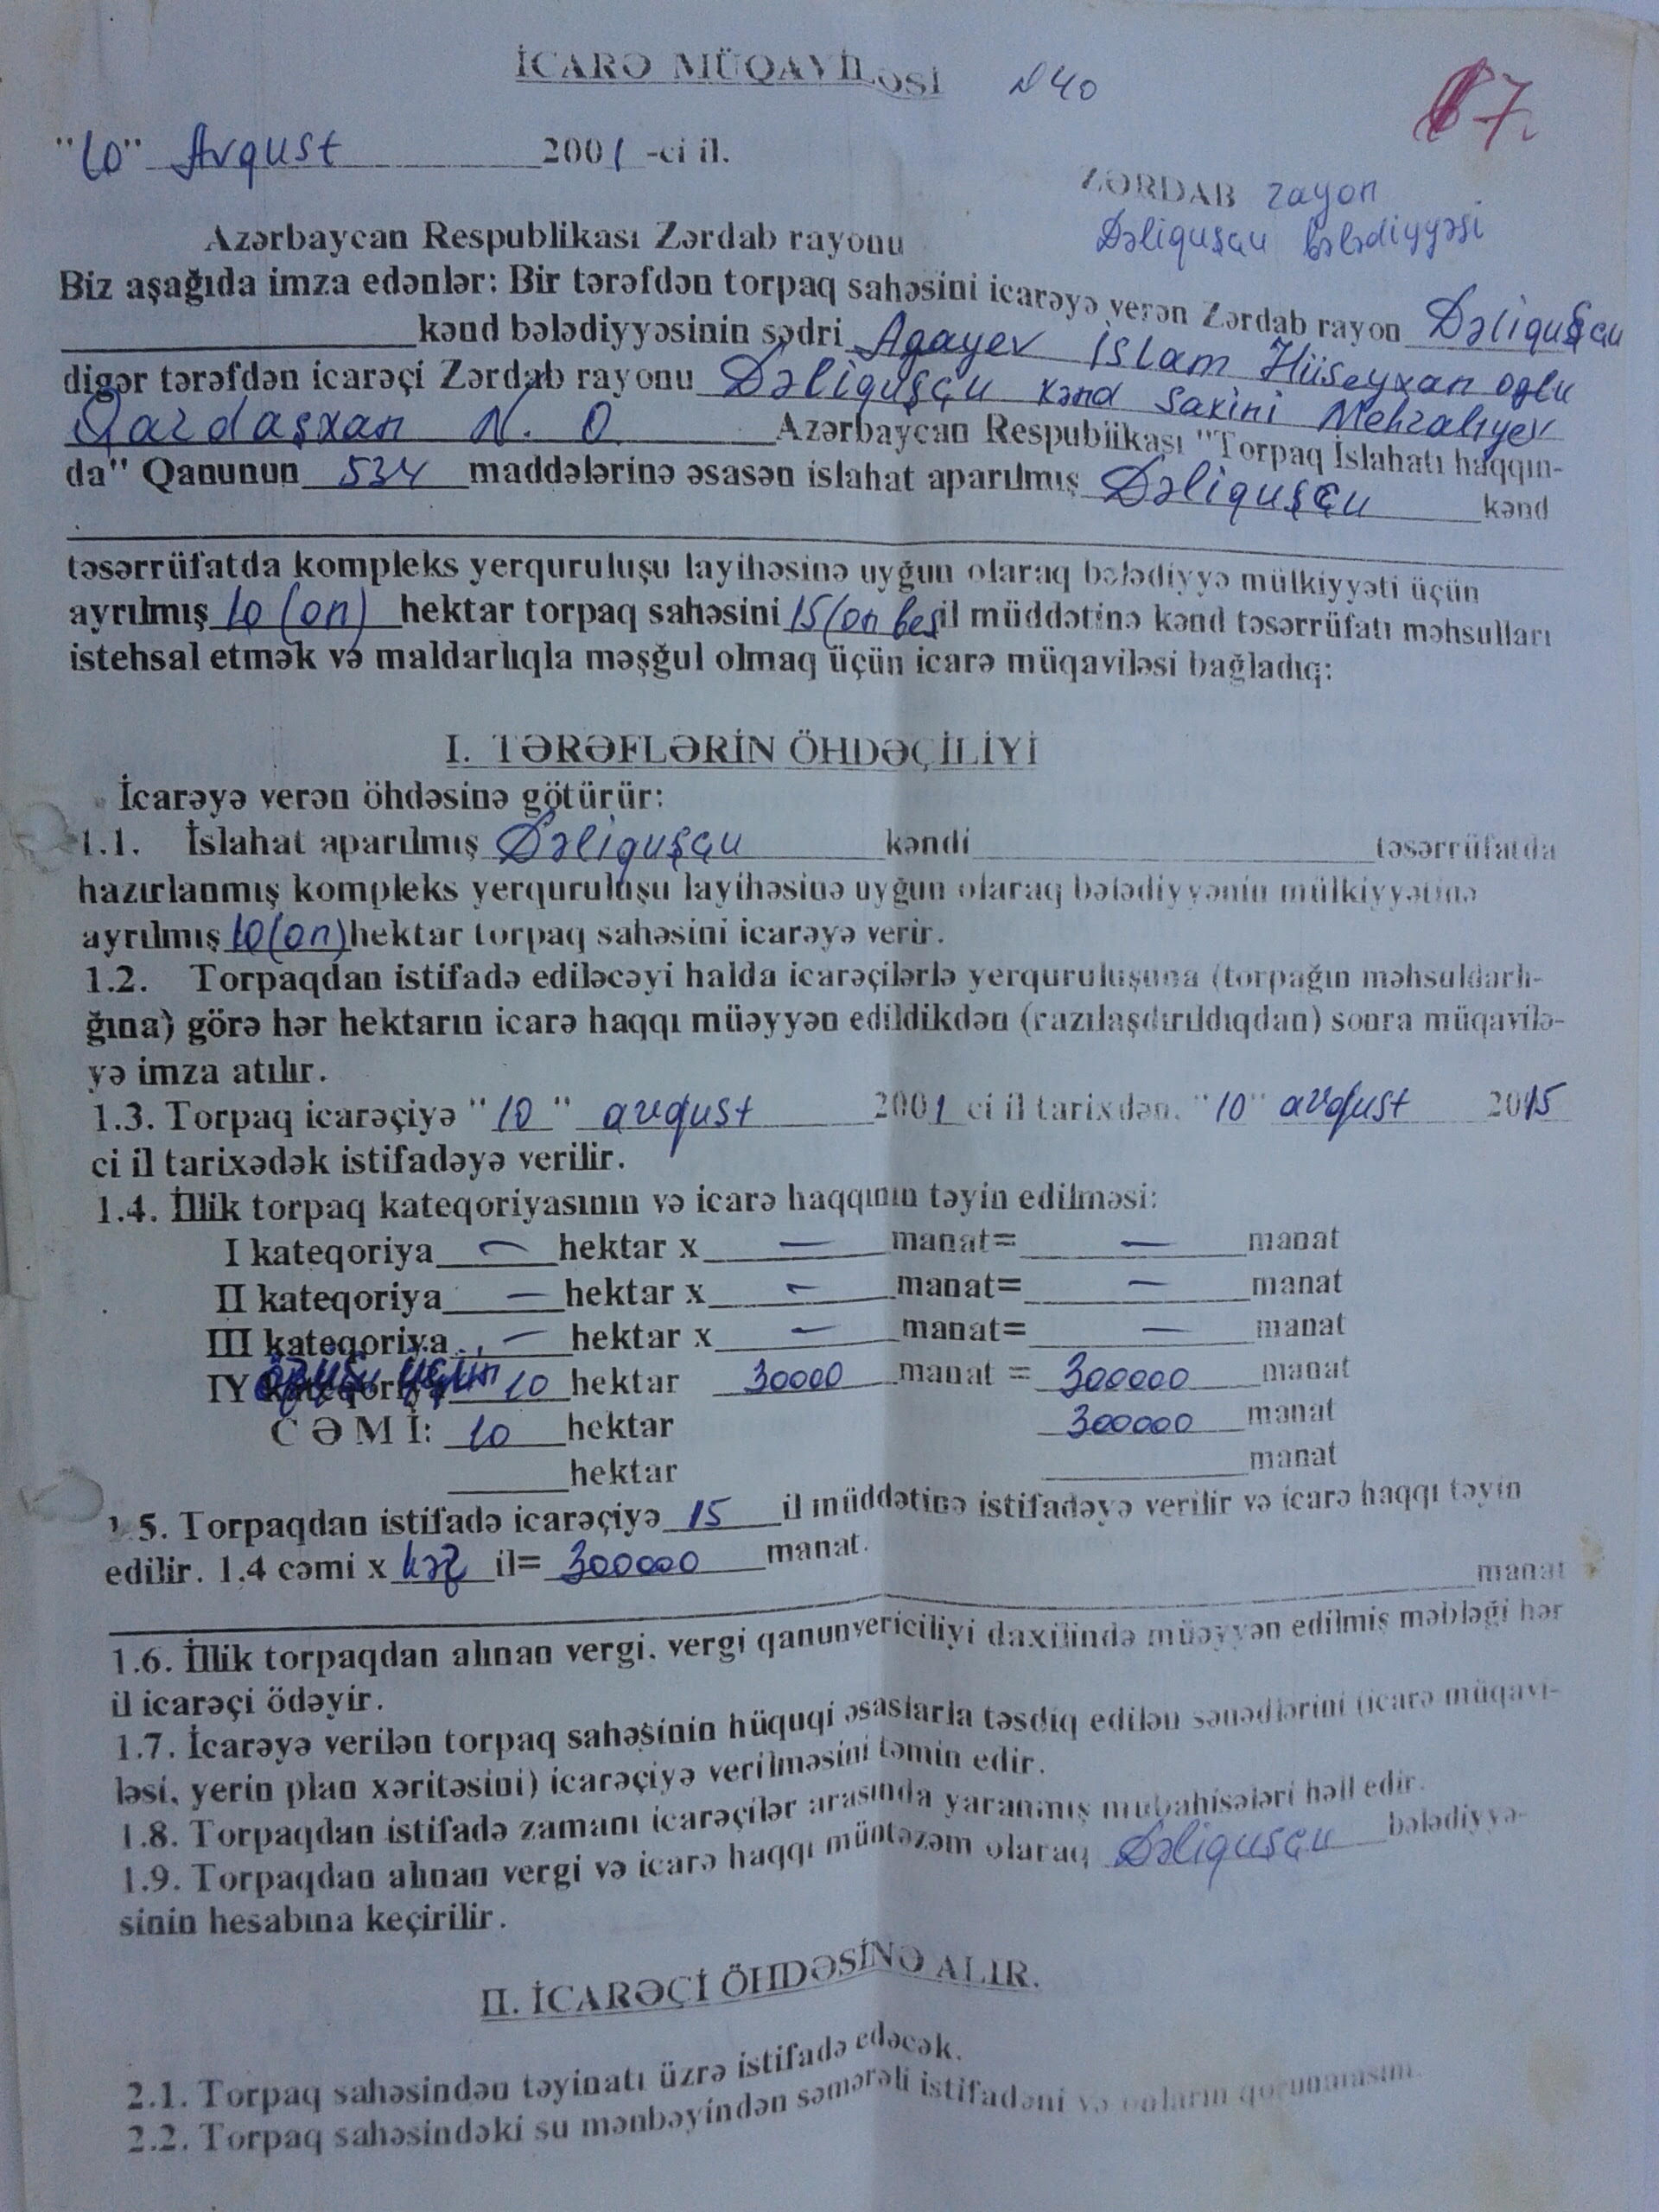 İCARƏ MÜQAVİLƏSİ N40
7.
"10" Avqust 2001-ci il.
ZƏRDAB rayon
Dəliquşçu bələdiyyəsi
Azərbaycan Respublikası Zərdab rayonu
Biz aşağıda imza edənlər: Bir tərəfdən torpaq sahəsini icarəyə verən Zərdab rayon Dəliquşçu
kənd bələdiyyəsinin sədri Agayev İslam Hüseyxan oglu
digər tərəfdən icarəçi Zərdab rayonu Dəliquşçu kənd sakini Mehralıyev
Qardaşxan N. O. Azərbaycan Respublikası "Torpaq İslahatı haqqın-
da" Qanunun 534 maddələrinə əsasən islahat aparılmış Dəliquşçu kənd
təsərrüfatda kompleks yerquruluşu layihəsinə uyğun olaraq bələdiyyə mülkiyyəti üçün
ayrılmış 10 (on) hektar torpaq sahəsini 15 (on beş il müddətinə kənd təsərrüfatı məhsulları
istehsal etmək və maldarlıqla məşğul olmaq üçün icarə müqaviləsi bağladıq:
I. TƏRƏFLƏRİN ÖHDƏÇİLİYİ
İcarəyə verən öhdəsinə götürür:
1.1. İslahat aparılmış Dəliquşçu kəndi təsərrüfatda
hazırlanmış kompleks yerquruluşu layihəsinə uyğun olaraq bələdiyyənin mülkiyyətinə
ayrılmış 10 (on) hektar torpaq sahəsini icarəyə verir.
1.2. Torpaqdan istifadə ediləcəyi halda icarəçilərlə yerquruluşuna (torpağın məhsuldarlı-
ğına) görə hər hektarın icarə haqqı müəyyən edildikdən (razılaşdırıldıqdan) sonra müqavilə-
yə imza atılır.
1.3. Torpaq icarəçiyə "10" avqust 2001 ci il tarixdən, "10" avqust 2015
ci il tarixədək istifadəyə verilir.
1.4. İllik torpaq kateqoriyasının və icarə haqqının təyin edilməsi:
I kateqoriya — hektar x — manat= — manat
II kateqoriya — hektar x — manat= — manat
III kateqoriya — hektar x — manat= — manat
IY kateqoriya 10 hektar 30000 manat = 300000 manat
CƏMİ: 10 hektar 300000 manat
hektar manat
1.5. Torpaqdan istifadə icarəçiyə 15 il müddətinə istifadəyə verilir və icarə haqqı təyin
edilir. 1.4 cəmi x hər il= 300000 manat.
manat
1.6. İllik torpaqdan alınan vergi, vergi qanunvericiliyi daxilində müəyyən edilmiş məbləği hər
il icarəçi ödəyir.
1.7. İcarəyə verilən torpaq sahəsinin hüquqi əsaslarla təsdiq edilən sənədlərini (icarə müqavi-
ləsi, yerin plan xəritəsini) icarəçiyə verilməsini təmin edir.
1.8. Torpaqdan istifadə zamanı icarəçilər arasında yaranmış mubahisələri həll edir.
1.9. Torpaqdan alınan vergi və icarə haqqı müntəzəm olaraq Dəliquşçu bələdiyyə-
sinin hesabına keçirilir.
II. İCARƏÇİ ÖHDƏSİNƏ ALIR.
2.1. Torpaq sahəsindən təyinatı üzrə istifadə edəcək.
2.2. Torpaq sahəsindəki su mənbəyindən səmərəli istifadəni və onların qorunmasını.